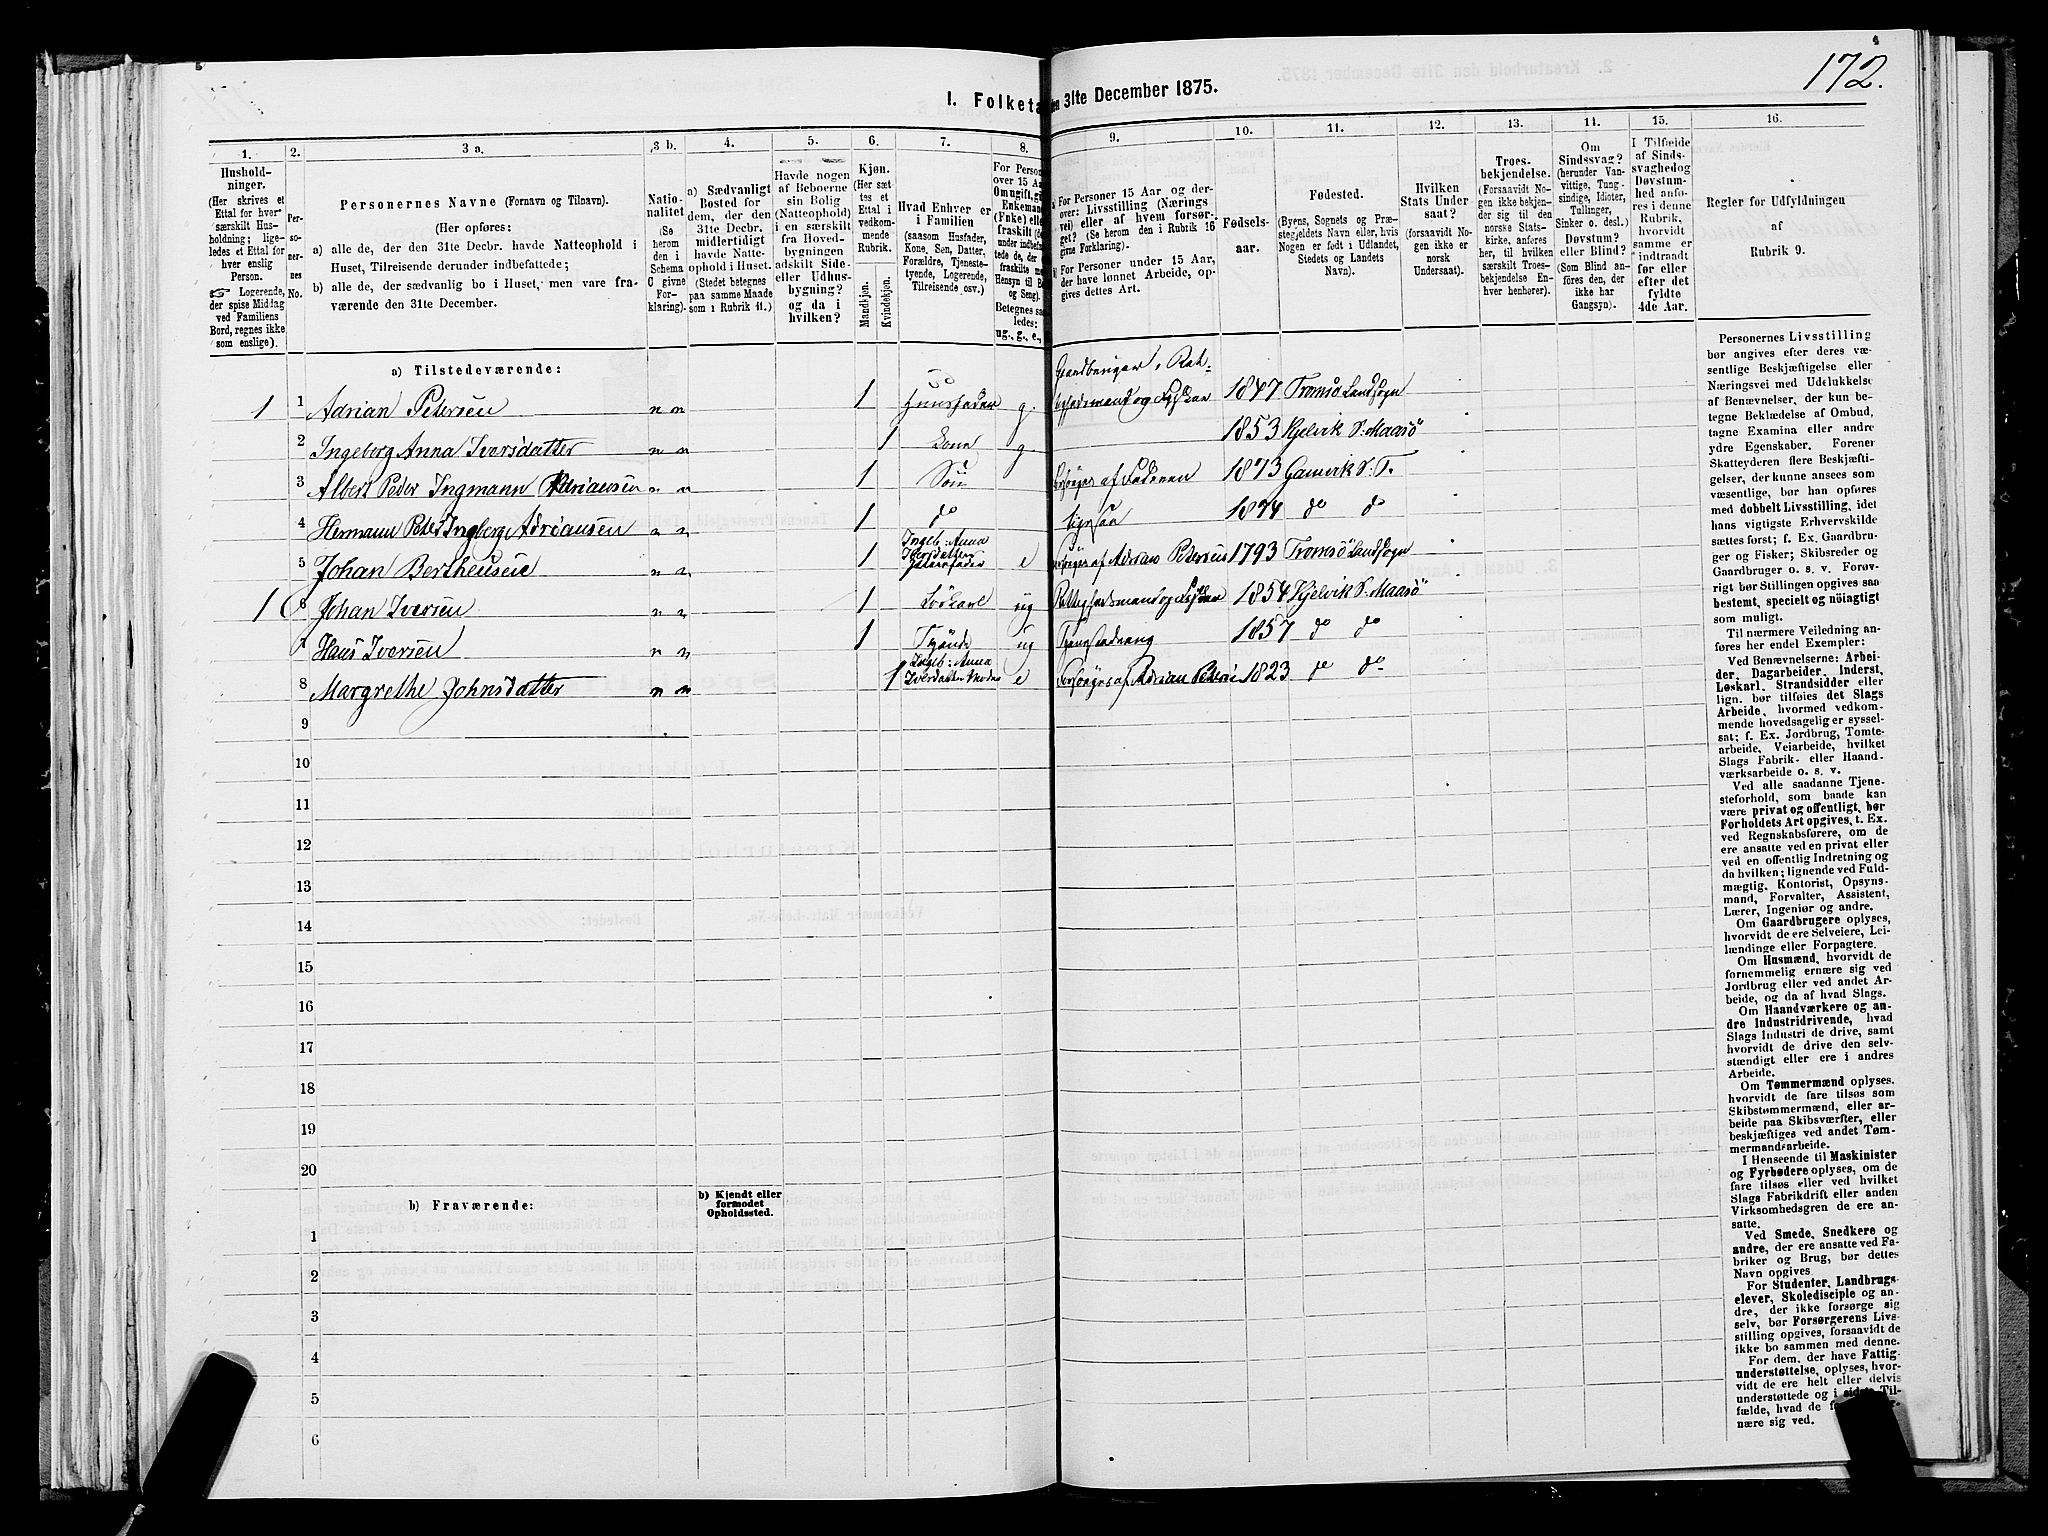 172.
I. Folketa
en 31te December 1875.
1. 2. 3 a. 3 b. 4. 5. 6. 7. 8. 9. 10. 11. 12. 13. 14. 15. 16.
Hushold-
ninger.
(Her skrives et
Ettal for hver
særskilt Hus-
holdning; lige-
ledes et Ettal for
hver enslig
Person.
Logerende,
der spise Middag
ved Familiens
Bord, regnes ikke
som enslige).
Per-
so-
ner-
nes
No.
Personernes Navne (Fornavn og Tilnavn).
(Her opføres:
a) alle de, der den 31te Decbr. havde Natteophold i
Huset, Tilreisende derunder indbefattede;
b) alle de, der sædvanlig bo i Huset, men vare fra-
værende den 31te December.
Natio-
nalitet
(Se
herom
den i
Schema
C givne
For-
klaring).
a) Sædvanligt
Bosted for
dem, der den
31te Decbr.
midlertidigt
havde Natte-
ophold i Huset.
(Stedet betegnes
paa samme Maade
som i Rubrik 11.)
Havde nogen
af Beboerne
sin Bolig
(Natteophold)
i en særskilt
fra Hoved-
bygningen
adskilt Side-
eller Udhus-
bygning?
og da i
hvilken?
Kjøn.
(Her sæt-
tes et
Ettal i
vedkom-
mende
Rubrik.
Mandkjøn.
Kvindekjøn.
Hvad Enhver er
i Familien
(saasom Husfader,
Kone, Søn, Datter,
Forældre, Tjeneste-
tyende, Logerende,
Tilreisende osv.)
For Person
over 15 Aa
Omgift, gi
Enkeman
(Fnke) elle
fraskilt (de
under indbefat
tede de, der
fraskilte me
Hensyn til Bo
og Seng).
Betegnes sa
ledes:
ug., g., e.,
For Personer 15 Aar og der-
over: Livsstilling (Nærings
vei) eller af hvem forsør-
get? (Se herom den i Rubrik 16
givne Forklaring).
For Personer under 15 Aar,
der have lønnet Arbeide, op-
gives dettes Art.
Fødsels-
aar.
Fødested.
(Byens, Sognets og Præ-
stegjeldets Navn eller, hvis
Nogen er født i Udlandet,
Stedets og Landets
Navn).
Hvilken
Stats Under
saat?
(forsaavidt No-
gen ikke er
norsk
Undersaat).
Troes-
bekjendelse.
(Forsaavidt No-
gen ikke bekjen-
der sig til den
norske Stats-
kirke, anføres
her, til hvilken
særskilt Troes-
bekjendelse En-
hver henhører).
Om
Sindssvag?
(herunder Van-
vittige, Tung-
sindige, Idioter,
Tullinger,
Sinker o. desl.)
Døvstum?
eller Blind?
(Som Blind an-
føres den, der
ikke har
Gangsyn).
I Tilfælde
af Sinds-
svaghed og
Døvstum-
hed anfø-
res i denne
Rubrik,
hvorvidt
samme er
indtraadt
før eller
efter det
fyldte
4de Aar.
Regler for Udfyldningen
af
Rubrik 9.
a) Tilstedeværende:
Gaardbruger, Rat-
1 1 Adrian Petersen n n 1 Huusfader g. 1847 Tromsö Landsogn
2 Ingeborg Anna Iversdatter n n 1 Kone g. 1853 Kjelvik S: Maasö
3 Albert Peder Ingmann Adriansen n n 1 Sön af Faderen 1873 Gamvik S. T.
4 Hermann Peter Ingberg Adriansen n n 1 do ligesaa 1874 do do
Ingeb: Anna
Iversdatters
5 Johan Bertheusen n n 1 e af Adrian Petersen 1793 Tromsö Landsogn
1 6 Johan Iversen n n 1 Löskarl ug 1854 Kjelvik S: Maasö
7 Hans Iversen n n 1 ug 1857 do do
Ingeb: Anna
8 Margrethe Johnsdatter n n 1 Iversdatter Moder e Forsörges af Adrian Peters 1823 do do
9
10
11
12
13
14
15
16
17
18
19
20
b) Fraværende:
b) Kjendt eller
formodet
Opholdssted.
1
2
3
4
5
6
Personernes Livsstilling
bør angives efter deres væ-
sentlige Beskjæftigelse eller
Næringsvei med Udelukkelse
af Benævnelser, der kun be-
tegne Beklædelse af Ombud,
tagne Examina eller andre
ydre Egenskaber. Forener
Skatteyderen flere Beskjæfti-
gelser, der kunne ansees som
væsentlige, bør han opføres
med dobbelt Livsstilling, idet
hans vigtigste Erhvervskilde
sættes først; f. Ex. Gaardbru-
ger og Fisker; Skibsreder og
Gaardbruger o. s. v. Forøv-
rigt bør Stillingen opgives saa
bestemt, specielt og nöiagtigt
som muligt.
Til nærmere Veiledning an-
føres her endel Exempler:
Ved Benævnelserne: Arbei-
der, Dagarbeider, Inderst,
Løskarl, Strandsidder eller
lign. bør tilføies det Slags
Arbeide, hvormed vedkom-
mende hovedsagelig er syssel-
sat; f. Ex. Jordbrug, Tomte-
arbeide, Veiarbeide, hvilket
Slags Fabrik- eller Haand-
værksarbeide o. s. v.
Ved alle saadanne Tjene-
steforhold, som baade kan
være privat og offentligt, bør
Forholdets Art opgives, t. Ex.
ved Regnskabsførere, om de
ere ansatte ved en privat eller
ved en offentlig Indretning og
da hvilken; lignende ved Fuld-
mægtig, Kontorist, Opsyns-
mand, Forvalter, Assistent,
Lærer, Ingeniør og andre.
Om Gaardbrugere oplyses,
hvorvidt de ere Selveiere, Lei-
lændinge eller Forpagtere.
Om Husmænd, hvorvidt de
fornemmelig ernære sig ved
Jordbrug eller ved andet Ar-
beide, og da af hvad Slags.
Om Haandværkere og an-
dre Industridrivende, hvad
Slags Industri de drive, samt
hvorvidt de drive den selv-
stændigt eller ere i andres
Arbeide.
Om Tømmermænd oplyses,
hvorvidt de fare tilsøs som
Skibstømmermænd, eller ar-
beide paa Skibsværfter, eller
beskjæftiges ved andet Tøm-
mermandsarbeide.
I Henseende til Maskinister
og Fyrbødere oplyses, om de
fare tilsøs eller ved hvilket
Slags Fabrikdrift eller anden
Virksomhedsgren de ere an-
satte.
Ved Smede, Snedkere og
andre, der ere ansatte ved Fa-
briker og Brug, bør dettes
Navn opgives.
For Studenter, Landbrugs-
elever, Skoledisciple og an-
dre, der ikke forsørge sig
selv, bør Forsørgerens Livs-
stilling opgives, forsaavidt de
ikke bo sammen med denne-
For dem, der have Fattig-
understøttelse, oplyses, hvor-
vidt de ere helt eller delvis
understøttede og i sidste Til-
fælde, hvad de
nære sig ved.